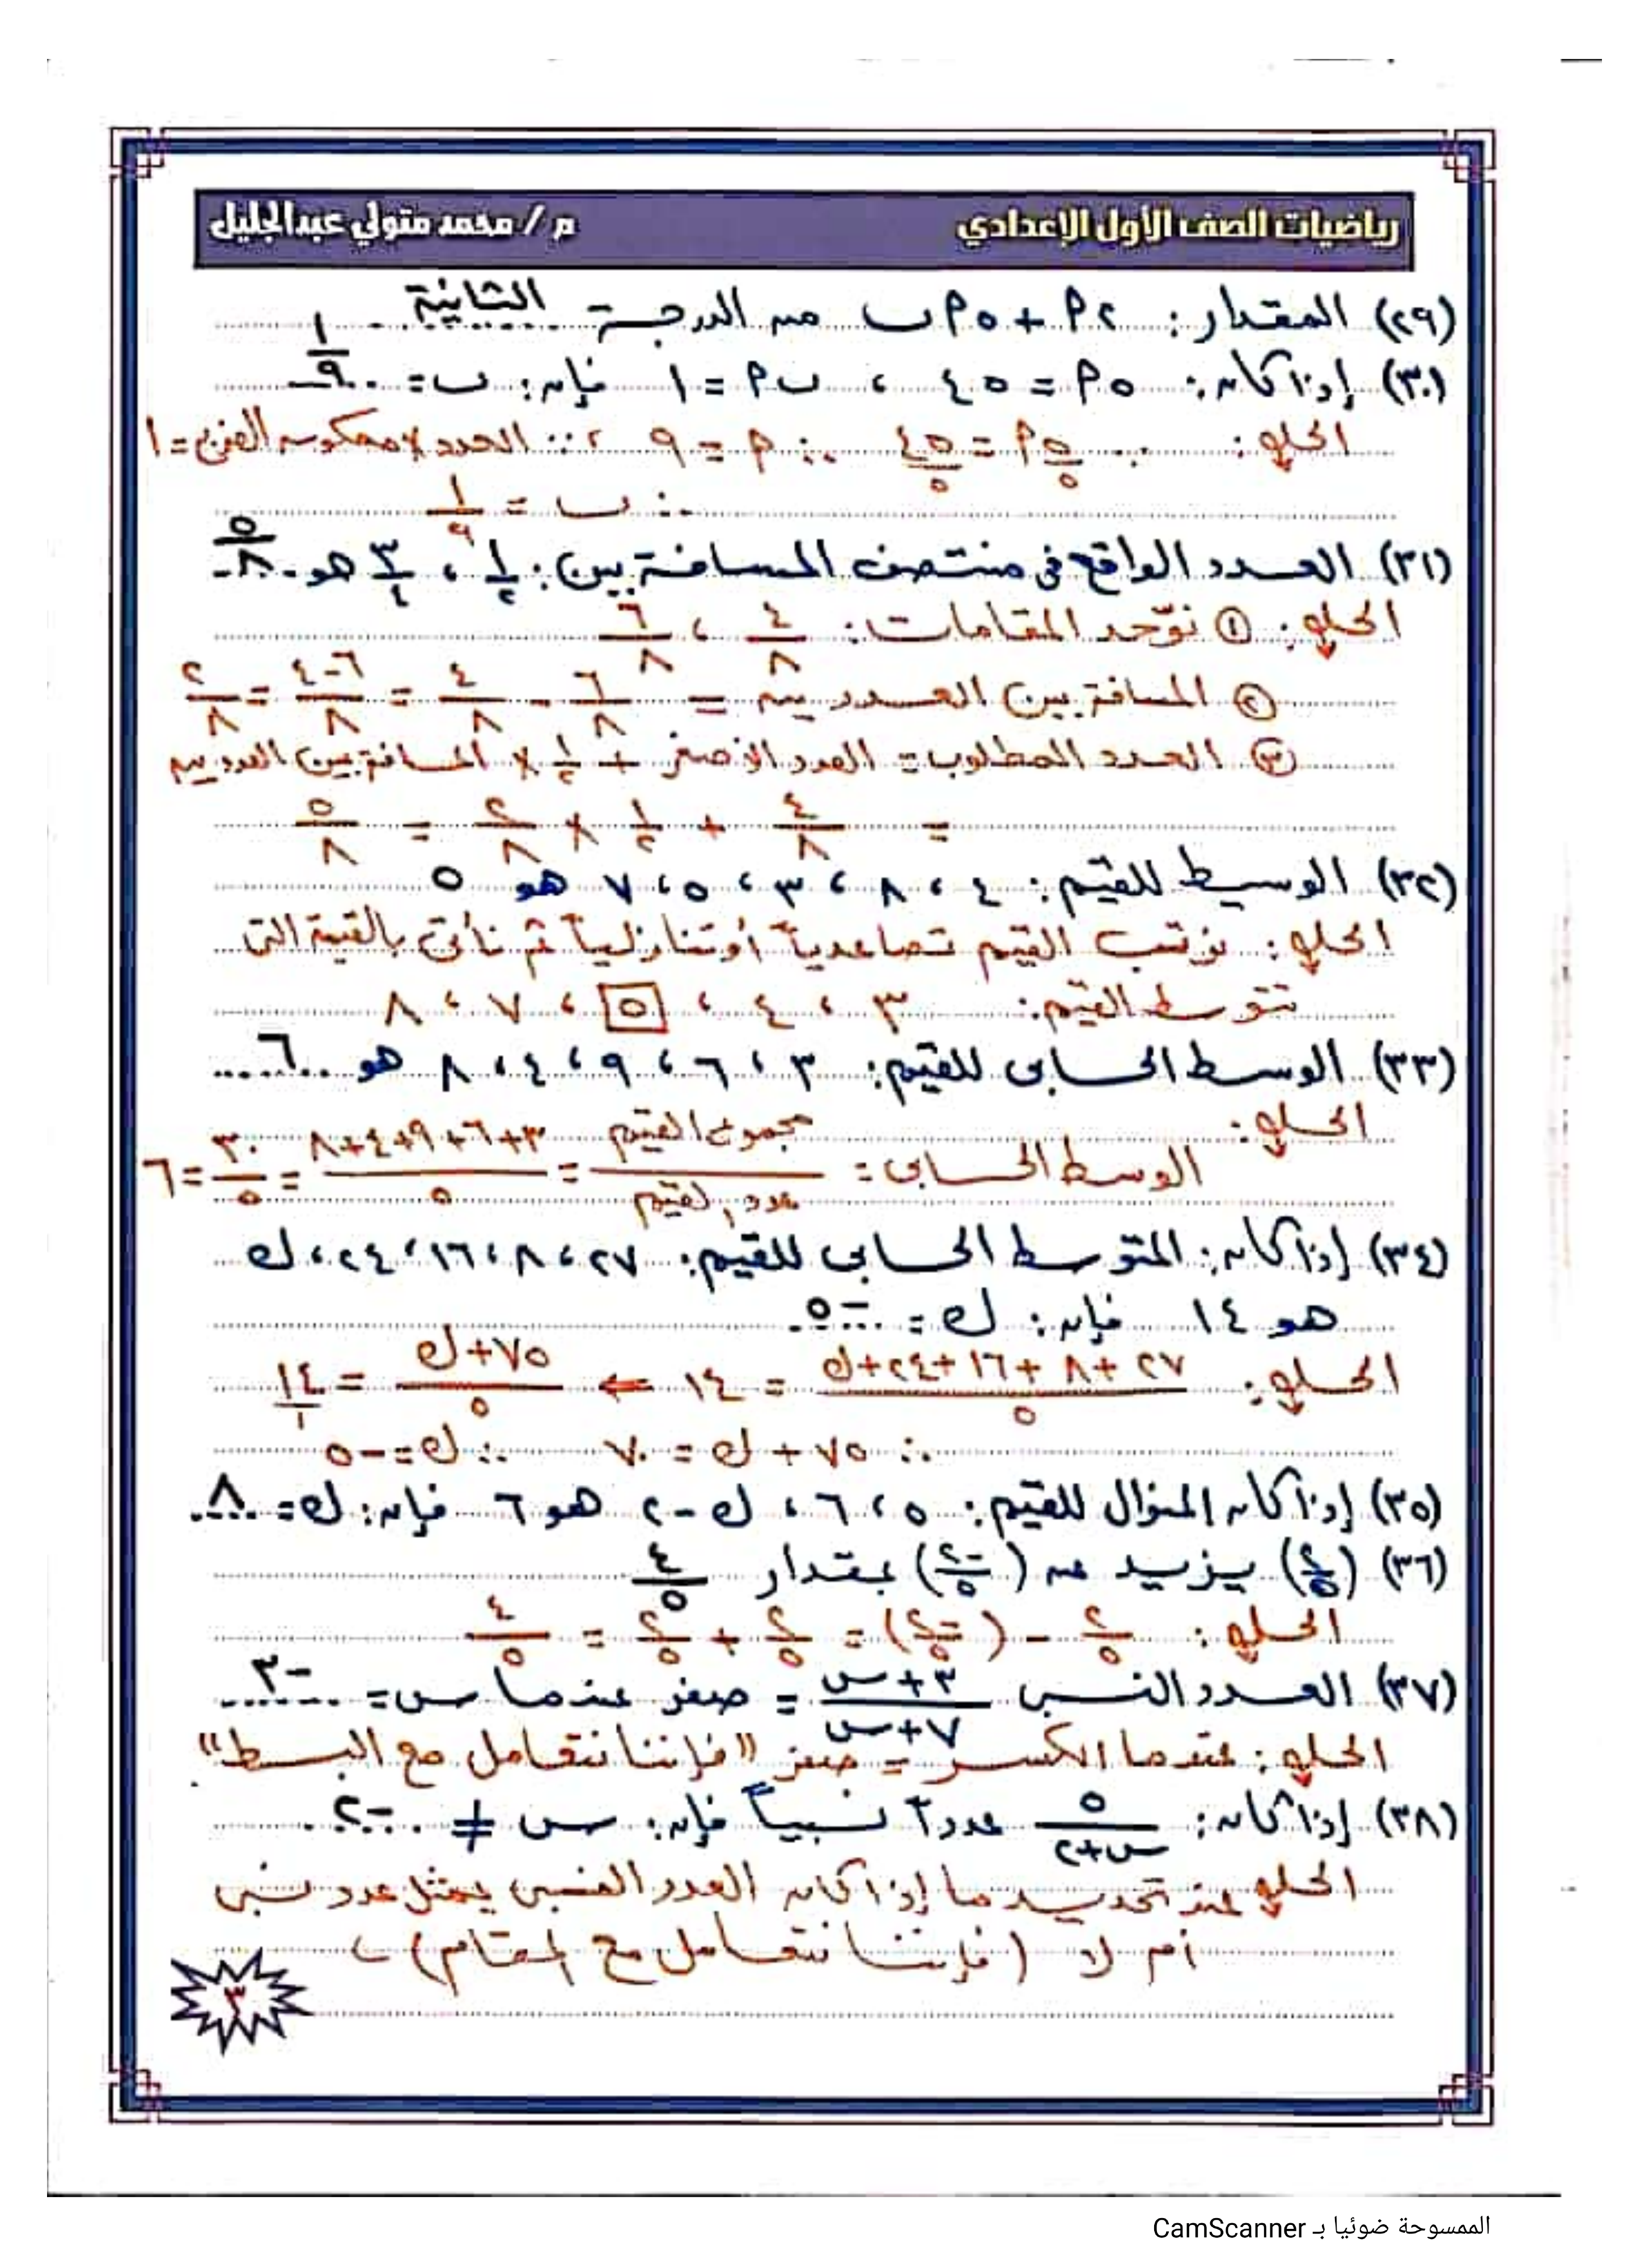 رياضيات الصف الأول الإعدادي م / محمد متولي عبدالجليل
(٢٩) المقدار : ٢أ + ٥أب من الدرجة الثانية
(٣٠) إذا كان : ٥أ = ٤٥ ، بأ = ١ فإن : ب = ١/٩
الحل : ∵ ٥أ/٥ = ٤٥/٥ ∴ أ = ٩ ، ∵ العدد × معكوسه الضربي = ١
∴ ب = ١/٩
(٣١) العدد الواقع في منتصف المسافة بين : ١/٢ ، ٣/٤ هو ٥/٨
الحل : ① نوّحد المقامات : ٤/٨ ، ٦/٨
② المسافة بين العددين = ٦/٨ - ٤/٨ = ٦-٤/٨ = ٢/٨
③ العدد المطلوب = العدد الأصغر + ١/٢ × المسافة بين العددين
= ٤/٨ + ١/٢ × ٢/٨ = ٥/٨
(٣٢) الوسيط للقيم : ٤ ، ٨ ، ٣ ، ٥ ، ٧ هو ٥
الحل : نرتب القيم تصاعدياً أو تنازلياً ثم نأتي بالقيمة التي
تتوسط القيم : ٣ ، ٤ ، ٥ ، ٧ ، ٨
(٣٣) الوسط الحسابى للقيم : ٣ ، ٦ ، ٩ ، ٤ ، ٨ هو ٦
الحل :
الوسط الحسابى = مجموع القيم/عدد القيم = ٣+٦+٩+٤+٨/٥ = ٣٠/٥ = ٦
(٣٤) إذا كان : المتوسط الحسابى للقيم : ٢٧ ، ٨ ، ١٦ ، ٢٤ ، ك
هو ١٤ فإن : ك = -٥
الحل : ٢٧+٨+١٦+٢٤+ك/٥ = ١٤ ⇐ ٧٥+ك/٥ = ١٤/١
∴ ٧٥ + ك = ٧٠ ∴ ك = -٥
(٣٥) إذا كان المنوال للقيم : ٥ ، ٦ ، ك - ٢ هو ٦ فإن : ك = ٨
(٣٦) (٢/٥) يزيد عن (-٢/٥) بمقدار ٤/٥
الحل : ٢/٥ - (-٢/٥) = ٢/٥ + ٢/٥ = ٤/٥
(٣٧) العدد النسبى ٣+س/٧+س = صفر عندما س = -٣
الحل : عندما الكسر = صفر "فإننا نتعامل مع البسط"
(٣٨) إذا كان : ٥/س+٢ عدداً نسبياً فإن : س ≠ -٢
الحل عند تحديد ما إذا كان العدد النسبى يمثل عدد نسبى
أم لا (فإننا نتعامل مع المقام)
٣
الممسوحة ضوئيا بـ CamScanner